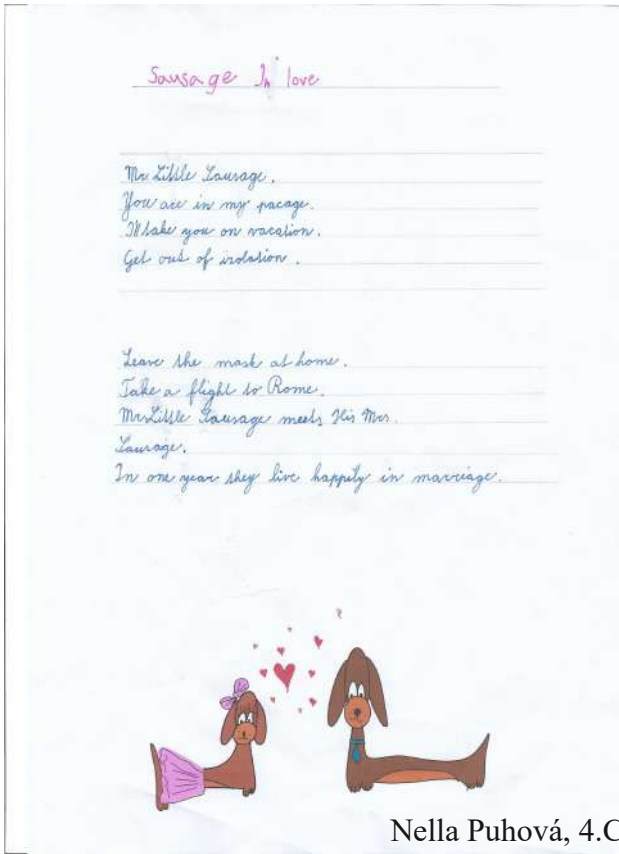 Sausage In love
Mr. Little Sausage.
You are in my pacage.
I'll take you on vacation.
Get out of isolation.
Leave the mask at home.
Take a flight to Rome.
Mr. Little Sausage meets His Mrs.
Sausage.
In one year they live happily in marriage.
Nella Puhová, 4.C